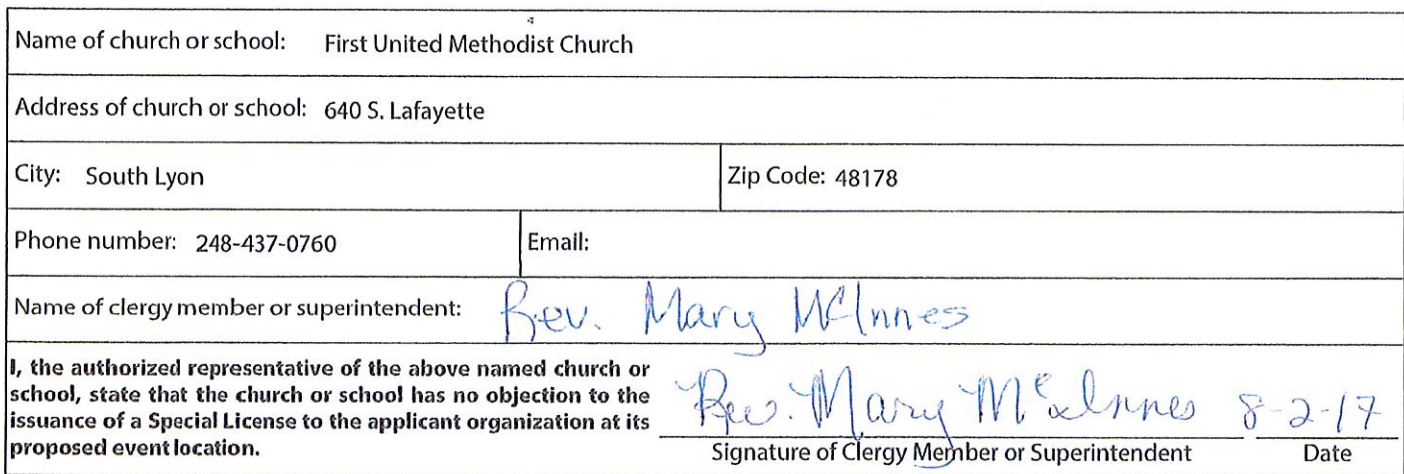 Name of church or school: First United Methodist Church
Address of church or school: 640 S. Lafayette
City: South Lyon Zip Code: 48178
Phone number: 248-437-0760 Email:
Name of clergy member or superintendent: Rev. Mary McInnes
I, the authorized representative of the above named church or
school, state that the church or school has no objection to the
issuance of a Special License to the applicant organization at its
proposed event location.
Rev. Mary McInnes 8-2-17
Signature of Clergy Member or Superintendent Date